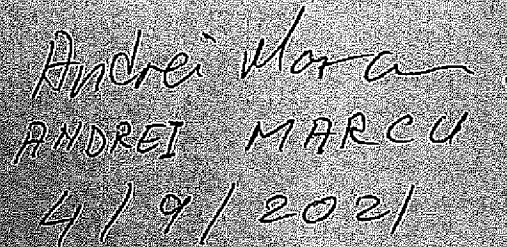 Andrei Marcu
ANDREI MARCU
4/9/2021